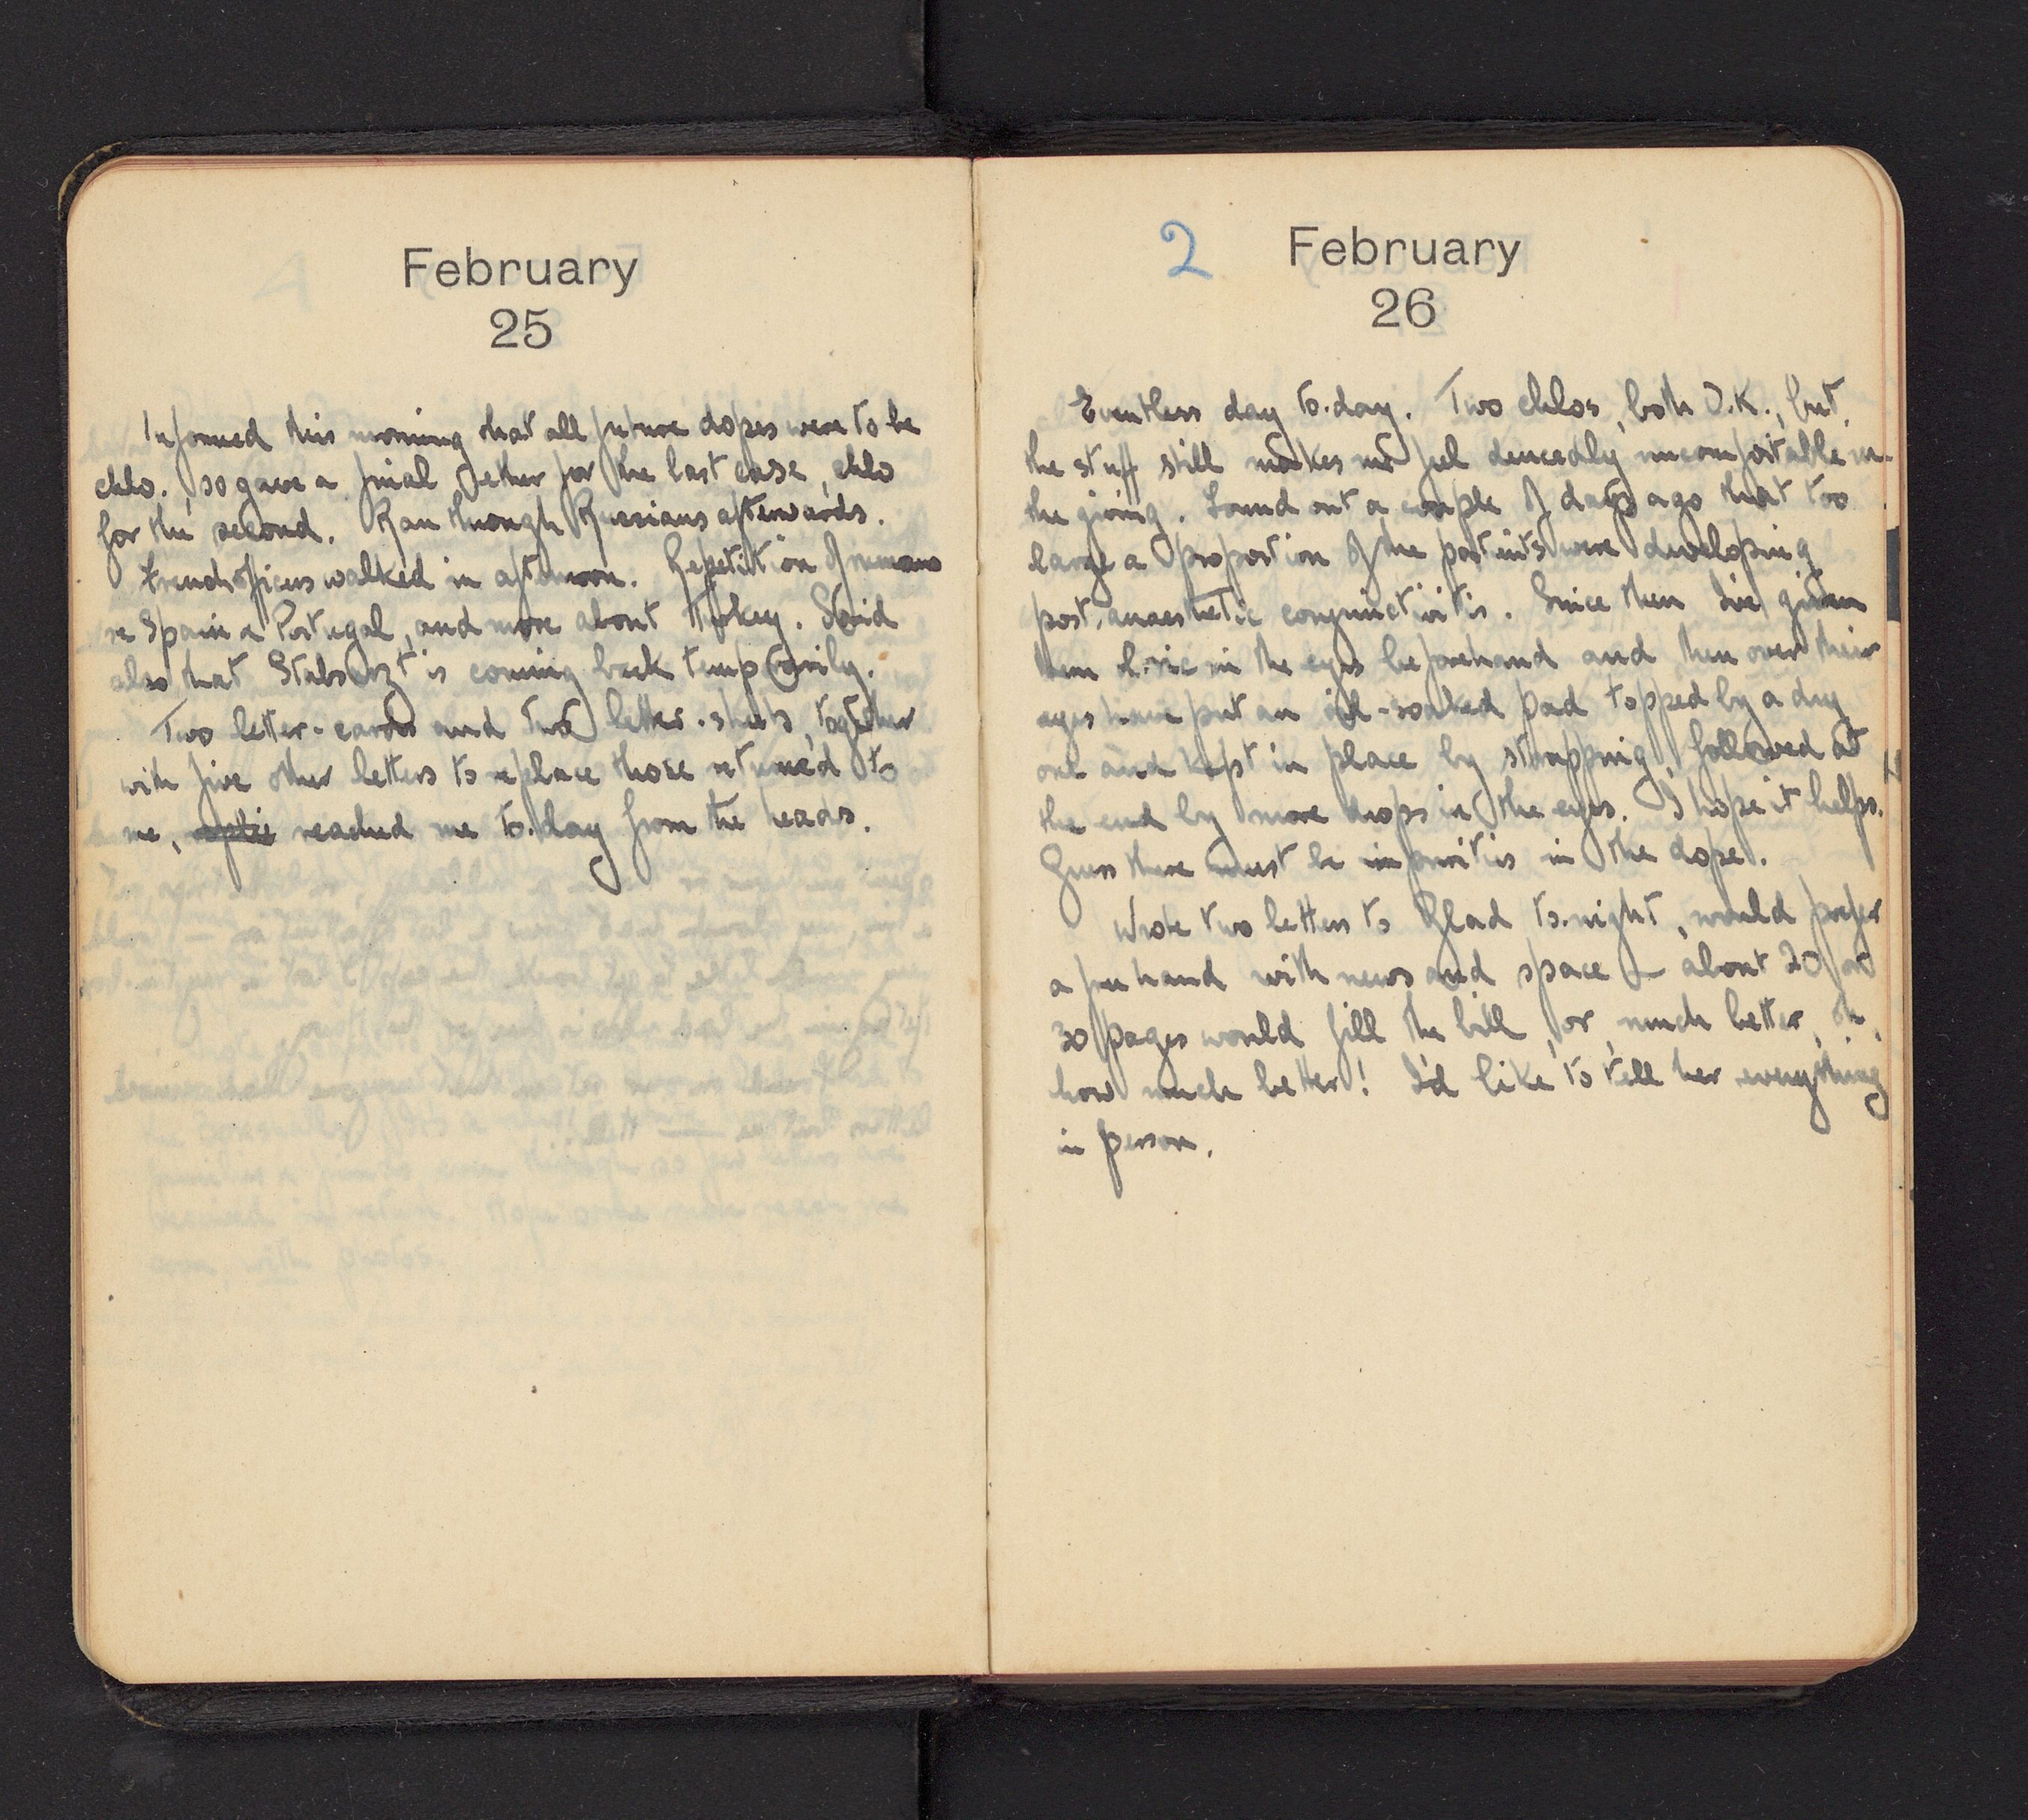 February
25
Informed this morning that all future dopes were to be
chlo., so gave a final ether for the last case, chlo
for the second. Ran through Russians afterwards.
French officers walked in afternoon. Repetition of rumours
re Spain & Portugal, and more about Turkey. Said
also that Stabsarzt is coming back temporarily.
Two letter-cards and two letter-sheets, together
with five other letters to replace those returned to
me, reached me to-day from the heads.
2 February
26
Eventless day to-day. Two chlos, both O.K., but
the stuff still makes me feel deucedly uncomfortable in
the giving. Found out a couple of days ago that too
large a proportion of the patients were developing
post-anaesthetic conjunctivitis. Since then I've given
them in the eyes beforehand and then over their
eyes have put an oil-soaked pad topped by a dry
one and kept in place by strapping, followed at
the end by more drops in the eyes. I hope it helps.
Guess there must be impurities in the dope.
Wrote two letters to Glad to-night, would prefer
a free hand with news and space – about 20 or
30 pages would fill the bill, or, much better, oh,
how much better! I'd like to tell her everything
in person.